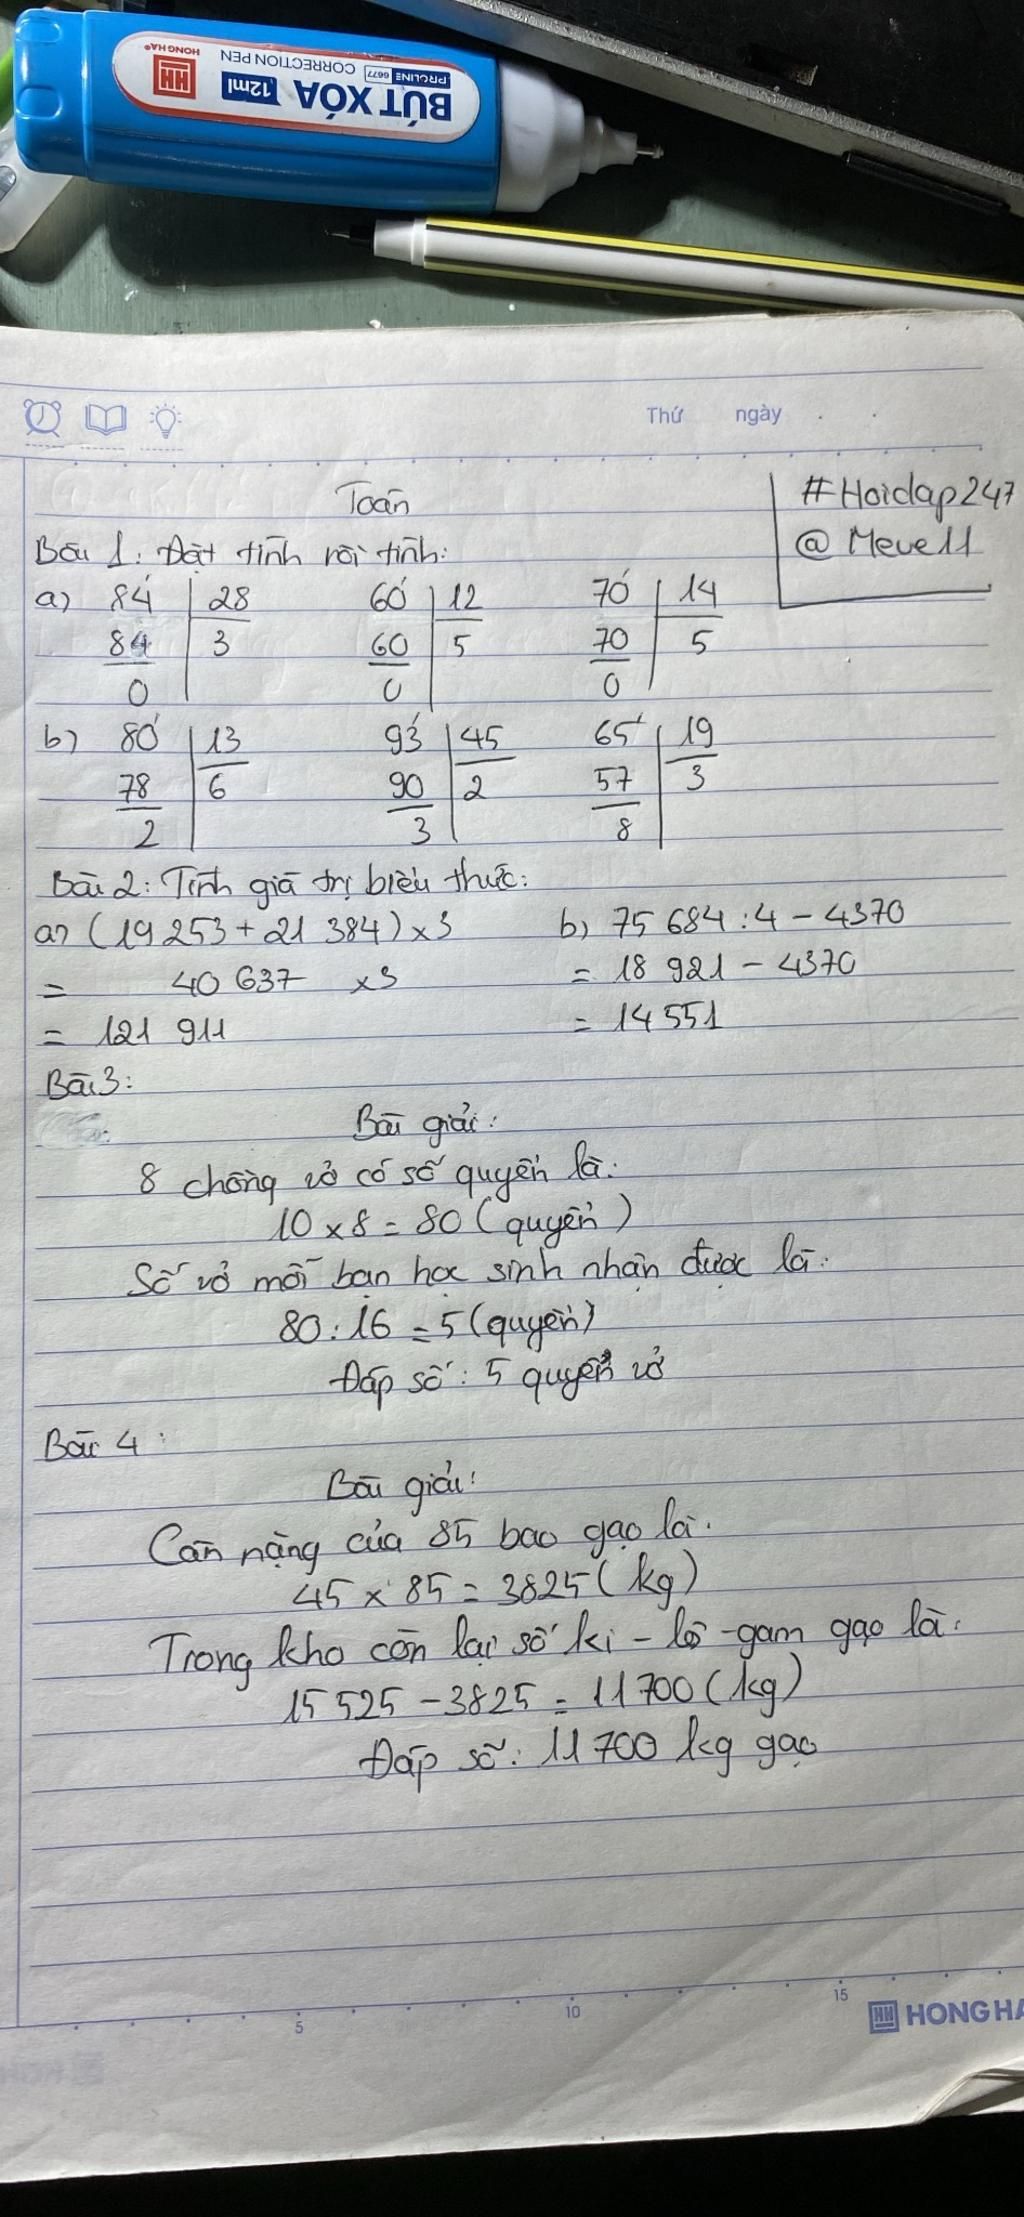 HONG HA®
HH
CORRECTION PEN
PROLINE 6677
BÚT XÓA 12ml
Thứ ngày
Toán
#Hoidap247
@Meve11
Bài 1: Đặt tính rồi tính:
a) 84 | 28 60 | 12 70 | 14
84 | 3 60 | 5 70 | 5
0 0 0
b) 80 | 13 93 | 45 65 | 19
78 | 6 90 | 2 57 | 3
2 3 8
Bài 2: Tính giá trị biểu thức:
a) (19 253 + 21 384) x 3 b) 75 684 : 4 - 4370
= 40 637 x 3 = 18 921 - 4370
= 121 911 = 14 551
Bài 3:
Bài giải:
8 chồng vở có số quyển là:
10 x 8 = 80 (quyển)
Số vở mỗi bạn học sinh nhận được là:
80 : 16 = 5 (quyển)
Đáp số: 5 quyển vở
Bài 4:
Bài giải:
Cân nặng của 85 bao gạo là:
45 x 85 = 3825 (kg)
Trong kho còn lại số ki-lô-gam gạo là:
15 525 - 3825 = 11 700 (kg)
Đáp số: 11 700 kg gạo
5 10 15
HH HONG HA